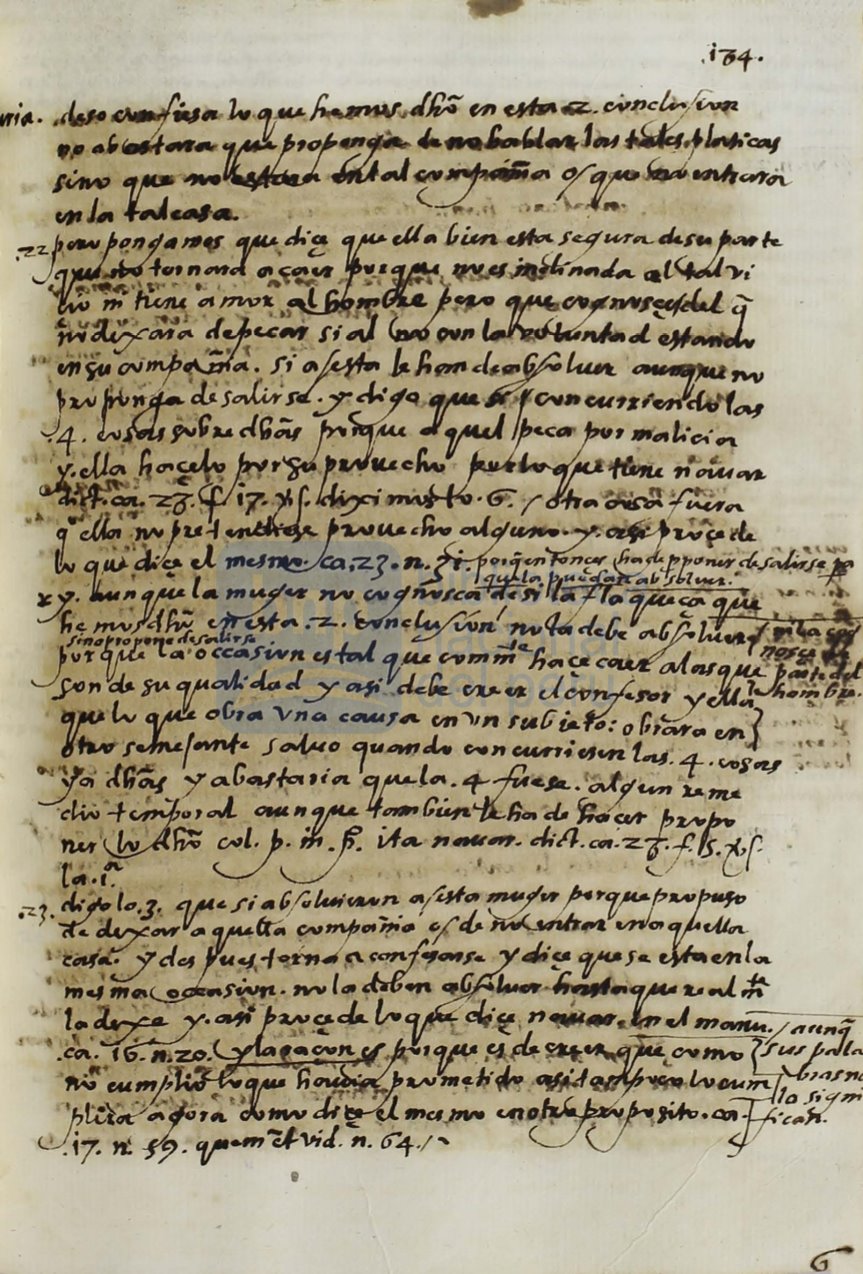 .134.
deso confiesa lo que hemos dhō en esta 2. conclusion
no abastara que proponga de no hablar las tales platicas
sino que no estara en tal compañia o que no entrara
en la tal casa.
.22 pero pongamos que diçe que ella bien esta segura de su parte
que no tornara a caer porque no es inclinada al tal vi
cio ni tiene amor al hombre pero que cognosçe del q̄
no dexara de pecar si al no con la voluntad estando
en su compañia. si a esta le han de absoluer aunque no
proponga de salirse. y digo que si concurriendo las
4. cosas sobre dhās porque aquel peca por malicia
y ella haçelo por su prouecho por lo que tiene nauar
dict. ca. 23. f. 17. diximosto. 6. / otra cosa fuera
q̄ ella no pretendiese prouecho alguno. y asi proçede
lo que diçe el mesmo. ca. 23. n. 31. porq̄ entonces ha de pponer de salirse pa
que la puedan absoluer.
y. aunque la muger no cognosca de si la flaqueça que
hemos dhō en esta .2. conclusion no la debe absoluer / ni la cog
nosca de
parte del
hombre.
sino propone de salirse
porque la occasion es tal que commte haçe caer a las que
son de su qualidad y asi debe creer el confesor y ella
que lo que obra vna causa en vn subieto: obrara en
otro semejante saluo quando concurriesen las. 4. cosas
ya dhās y abastaria que la .4 fuese. algun reme
dio temporal aunque tambien le ha de hacer propo
ner lo dhō col. p. in. p. ita nauar. dict. ca. 23. f. 15.
la .1.ª
.23. digo lo .3. que si absoluieron a esta muger porque propuso
de dexar aquella compañia o de no entrar en aquella
casa. y despues torna a confesarse y diçe que se esta en la
mesma occasion. no la deben absoluer hasta que realmte
la dexe y. asi proçede lo que diçe nauar. en el manu. / aunq̄
sus pala
bras no
lo signi
fican.
ca. 16. n. 20. y la raçon es porque es de creer que como
no cumplio lo que hauia prometido asi tampoco lo cum
plira agora como diçe el mesmo en otro proposito. ca.
.17. n. 59. quem et vid. n. 64. /
6